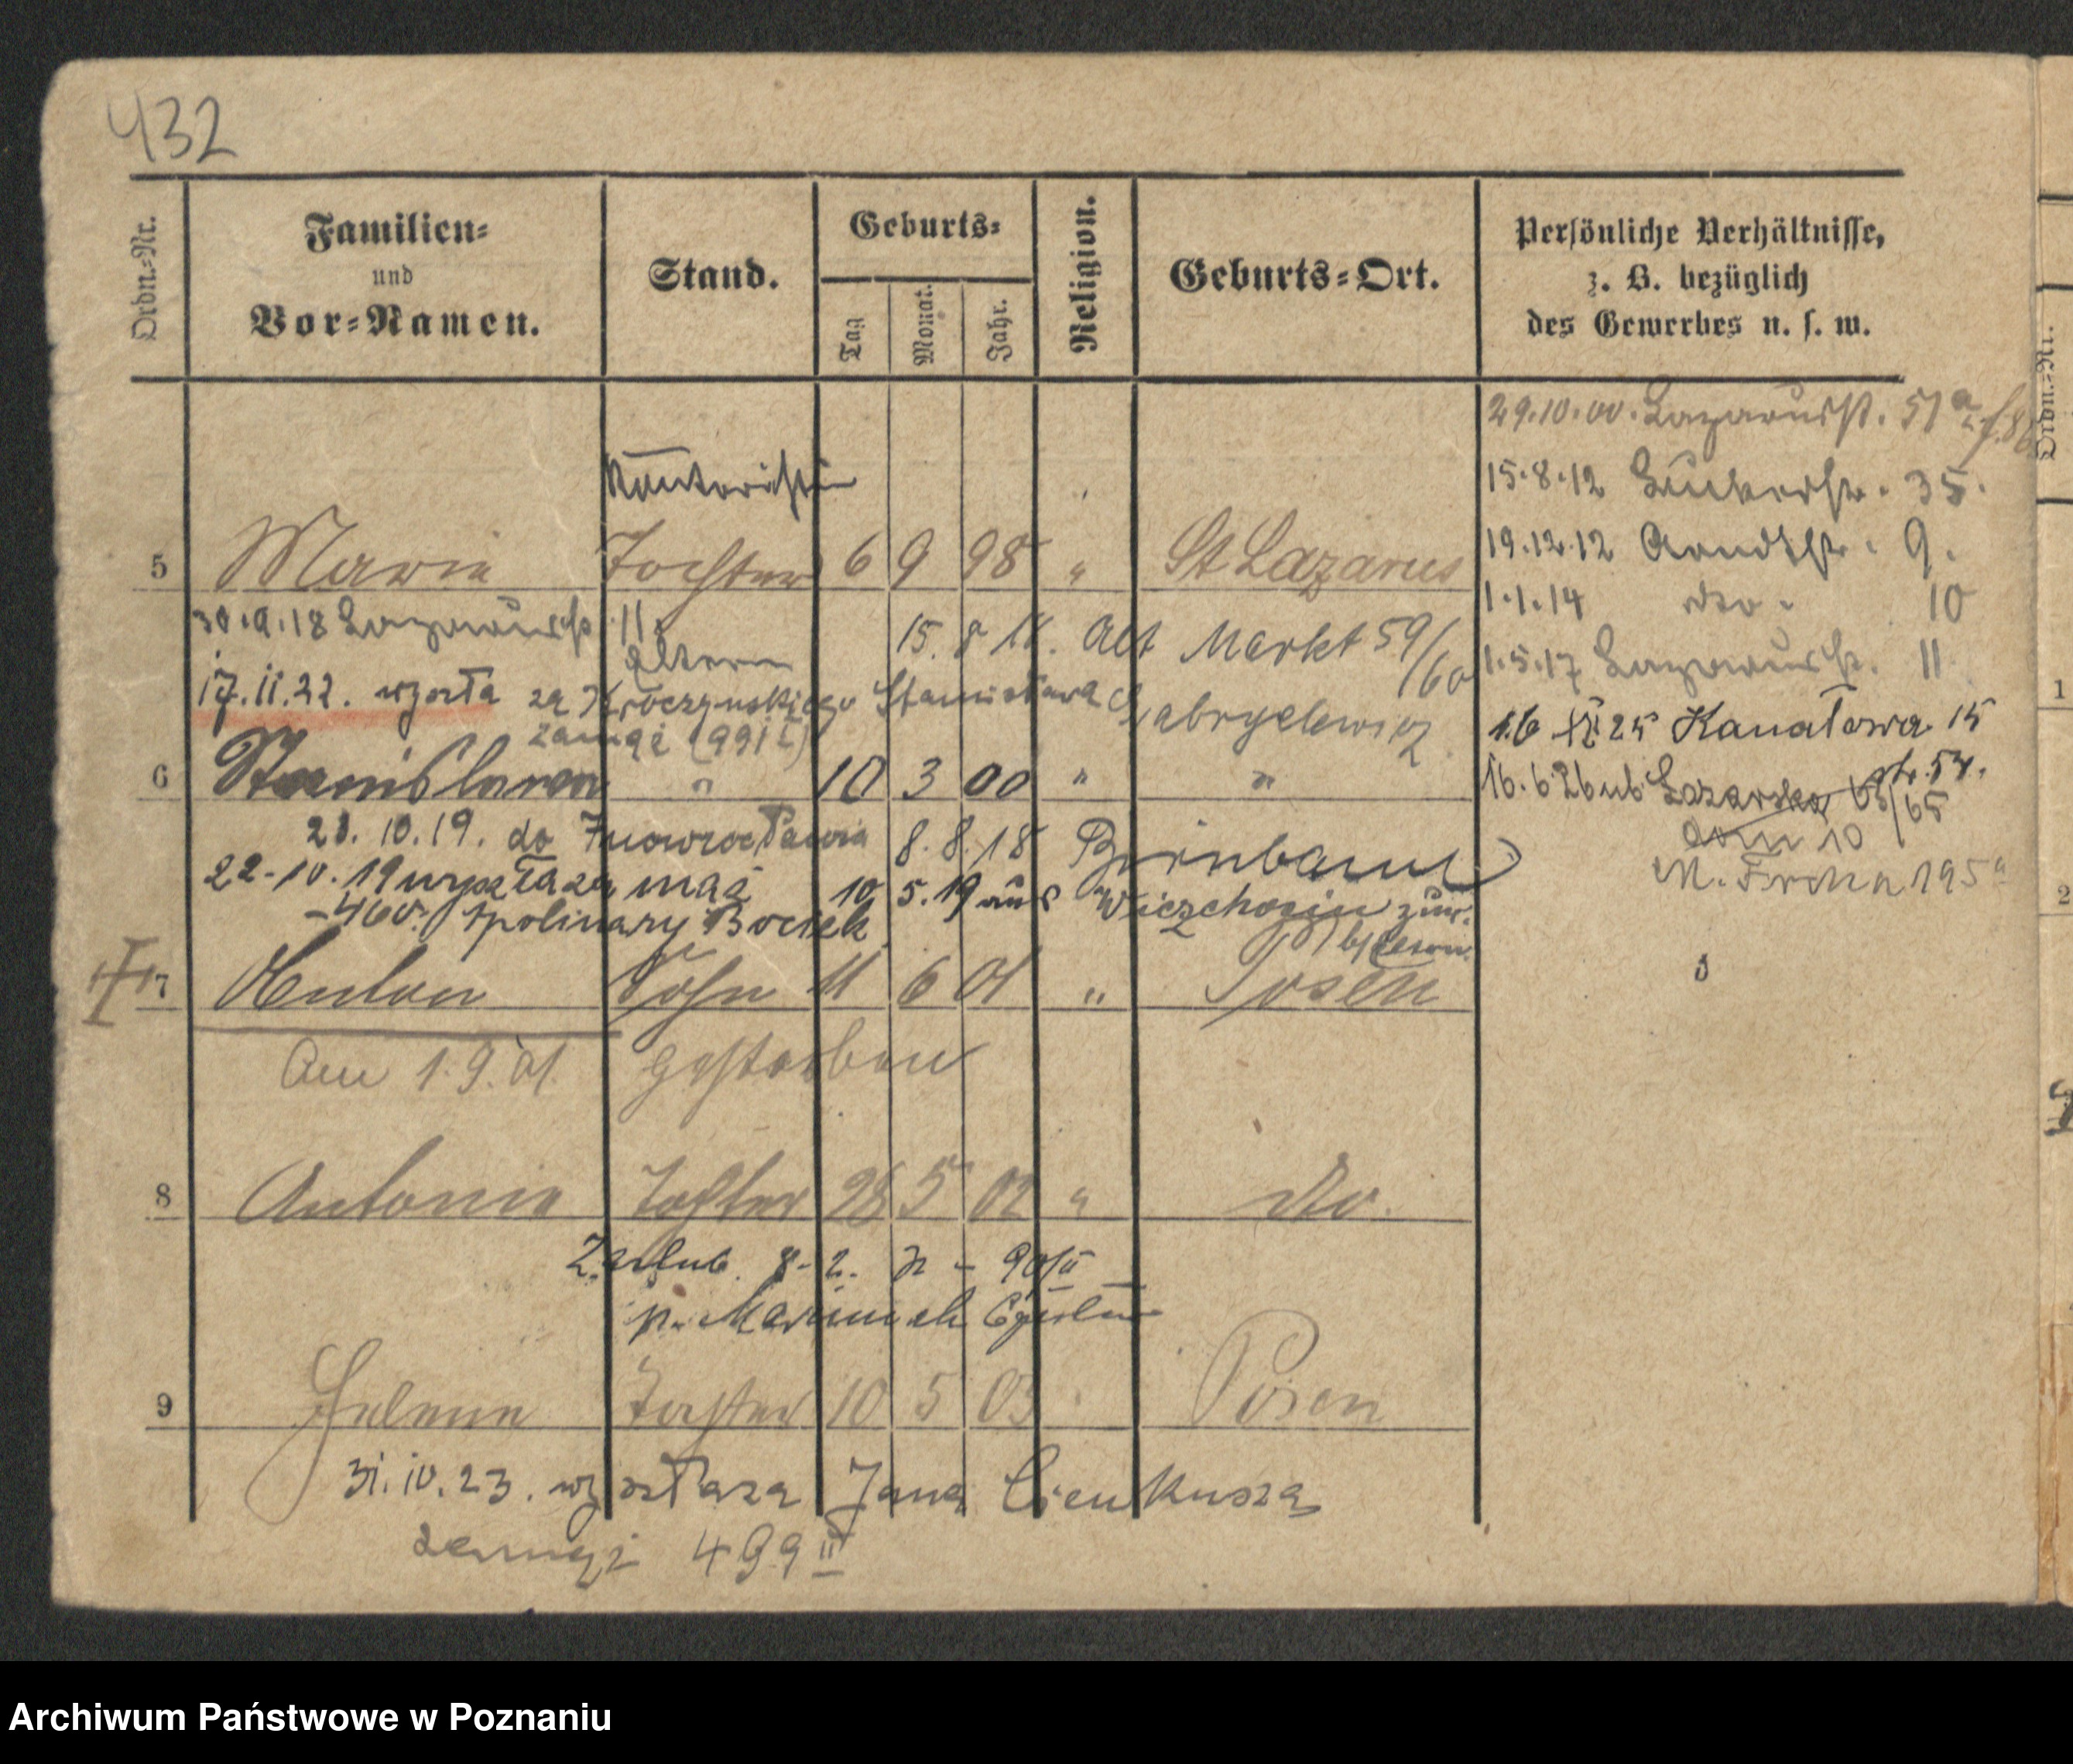 432
Ordn.-Nr.
Familien-
und
Vor-Namen.
Stand.
Geburts-
Tag
Monat.
Jahr.
Religion.
Geburts-Ort.
Persönliche Verhältnisse,
z. B. bezüglich
des Gewerbes u. s. w.
29.10.00. Lazarusst. 51a
15.8.12 35.
Kontoristin
19.12.12 Arndtstr. 9.
5 Marie Tochter 6 9 98 " St Lazarus
1.1.14 do. 10
30.9.18 Lazarusst 11. Eltern
15. 8 18. Alt Markt 59/60
1.5.17 Lazarusstr. 11
17.11.22. wyszła za Stanisława Gabryelewicz
zamęż (991 I)
16 25 Kanałowa 15
6 Stanislawa " 10 3 00 " "
16.6 26 ub Łazarska 63/65 str. 54.
dom 10
M. Focha 195a
21. 10. 19. do Inowrocławia
8. 8. 18 Birnbaum
22-10.19 wyszła za mąż
10 5. 19 aus zur.
-460. Apolinary Bociek
7 Anton Sohn 11 6 01 " Posen
Am 1.9.01. gestorben
8 Antonie Tochter 28 5 02 " do.
Zaślub. 8-2. 90/II
p. Marciniak
9 Helene Tochter 10 5 03 Posen
31.10.23. wyszła za Jana Cienkusza
zamęż 499 III
Ordn.-Nr.
1
2
Archiwum Państwowe w Poznaniu